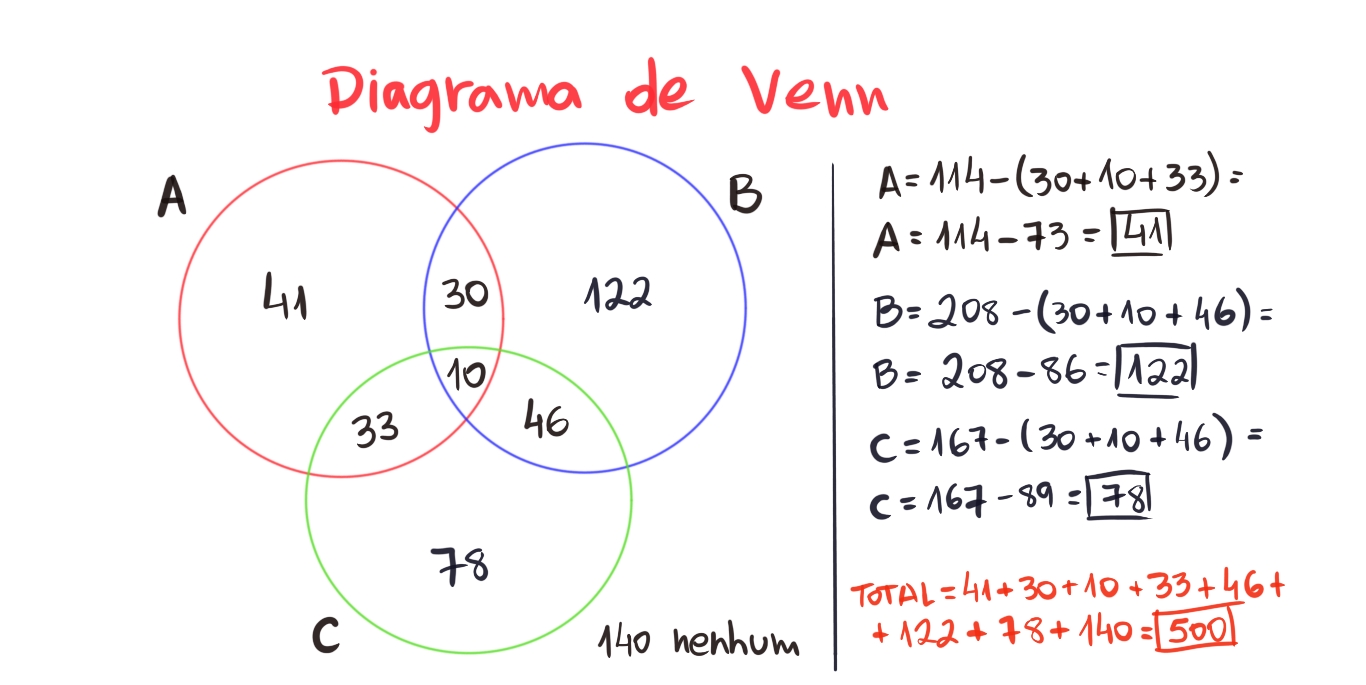 Diagrama de Venn
A
B
41
30
122
10
33
46
78
C
140 nenhum
A = 114 - (30 + 10 + 33) =
A = 114 - 73 = 41
B = 208 - (30 + 10 + 46) =
B = 208 - 86 = 122
C = 167 - (30 + 10 + 46) =
C = 167 - 89 = 78
TOTAL = 41 + 30 + 10 + 33 + 46 +
+ 122 + 78 + 140 = 500